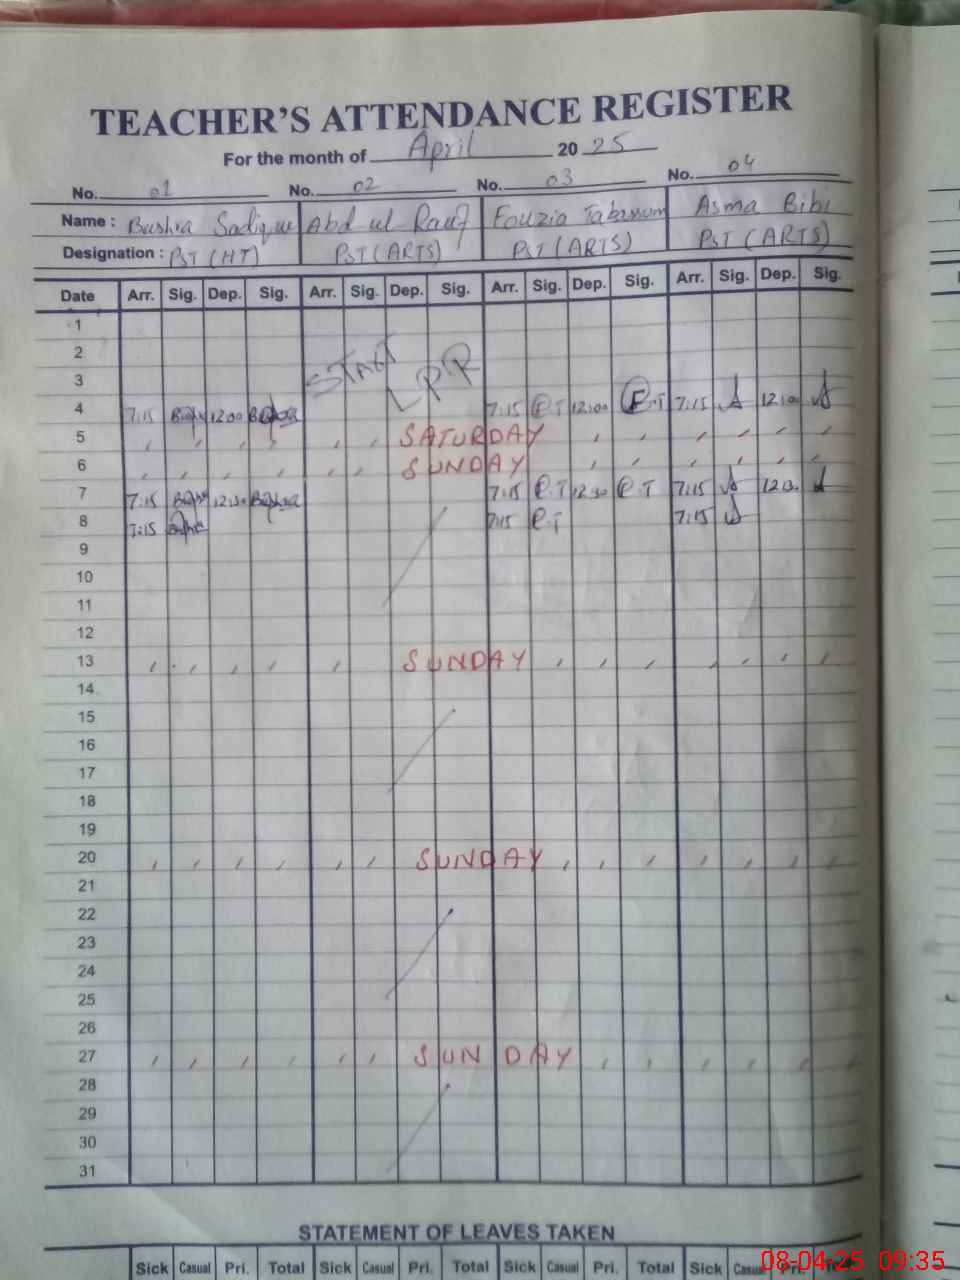 TEACHER'S ATTENDANCE REGISTER
For the month of April 20 25
No. 01 No. 02 No. 03 No. 04
Name : Bushra Sadique Abd ul Rauf Fouzia Tabassum Asma Bibi
Designation : PST (HT) PST (ARTS) PST (ARTS) PST (ARTS)
Date Arr. Sig. Dep. Sig. Arr. Sig. Dep. Sig. Arr. Sig. Dep. Sig. Arr. Sig. Dep. Sig.
1
2
3 START LPR
4 7:15 Bushra 12:00 Bushra 7:15 F.T 12:00 F.T 7:15 A 12:00 A
5 SATURDAY
6 SUNDAY
7 7:15 Bushra 12:30 Bushra 7:15 F.T 12:30 F.T 7:15 A 12:30 A
8 7:15 Bushra 7:15 F.T 7:15 A
9
10
11
12
13 SUNDAY
14
15
16
17
18
19
20 SUNDAY
21
22
23
24
25
26
27 SUNDAY
28
29
30
31
STATEMENT OF LEAVES TAKEN
Sick Casual Pri. Total Sick Casual Pri. Total Sick Casual Pri. Total Sick Casual Pri. Total
08-04-25 09:35